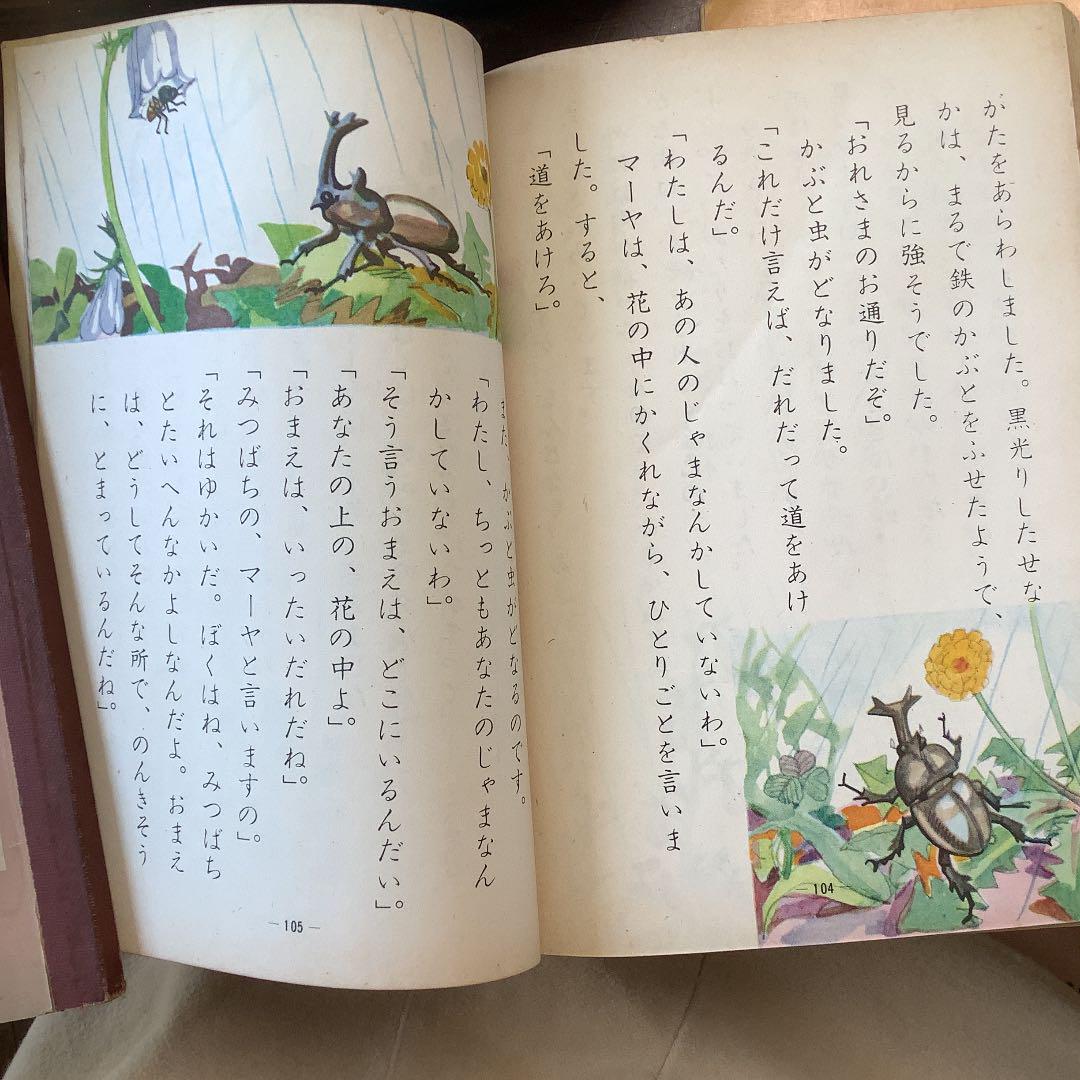 がたをあらわしました。黒光りしたせな
かは、まるで鉄のかぶとをふせたようで、
見るからに強そうでした。
「おれさまのお通りだぞ」。
かぶと虫がどなりました。
「これだけ言えば、だれだって道をあけ
るんだ」。
「わたしは、あの人のじゃまなんかしていないわ。
マーヤは、花の中にかくれながら、ひとりごとを言いま
した。すると、
「道をあけろ」。
104
また、かぶと虫がどなるのです。
「わたし、ちっともあなたのじゃまなん
かしていないわ」。
「そう言うおまえは、どこにいるんだい」。
「あなたの上の、花の中よ」。
「おまえは、いったいだれだね」。
「みつばちの、マーヤと言いますの」。
「それはゆかいだ。ぼくはね、みつばち
とたいへんなかよしなんだよ。おまえ
は、どうしてそんな所で、のんきそう
に、とまっているんだね」。
105